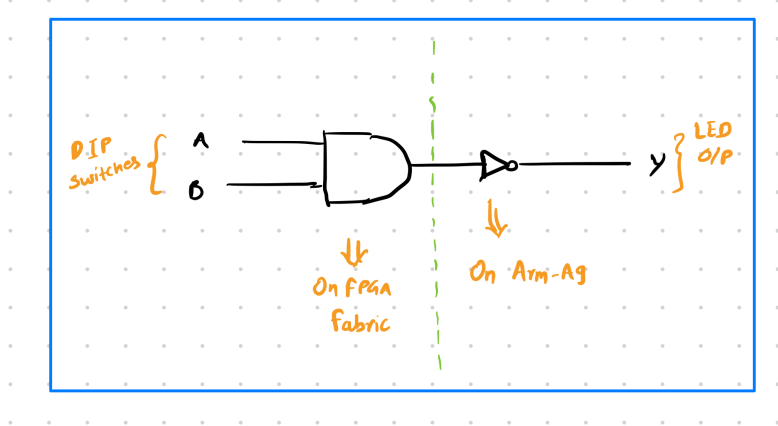 DIP
switches
A
B
On FPGA
fabric
On Arm-A9
Y
LED
O/P